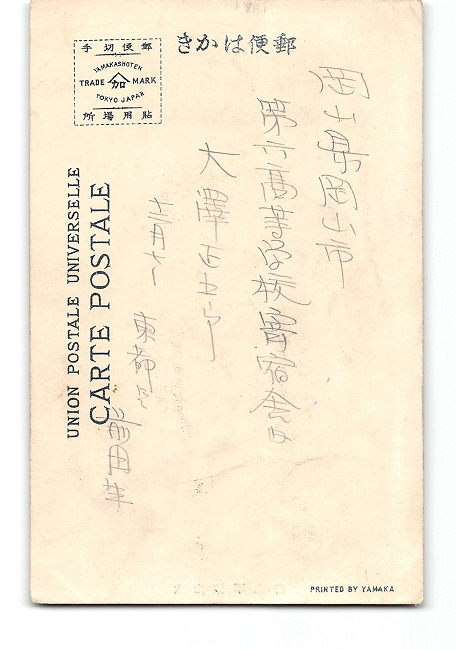 きかは便郵
手切便郵
YAMAKASHOTEN
TRADE 加 MARK
TOKYO JAPAN
所場用貼
UNION POSTALE UNIVERSELLE
CARTE POSTALE
岡山縣岡山市
第六高等学校寄宿舎内
大澤
東都
前田生
PRINTED BY YAMAKA